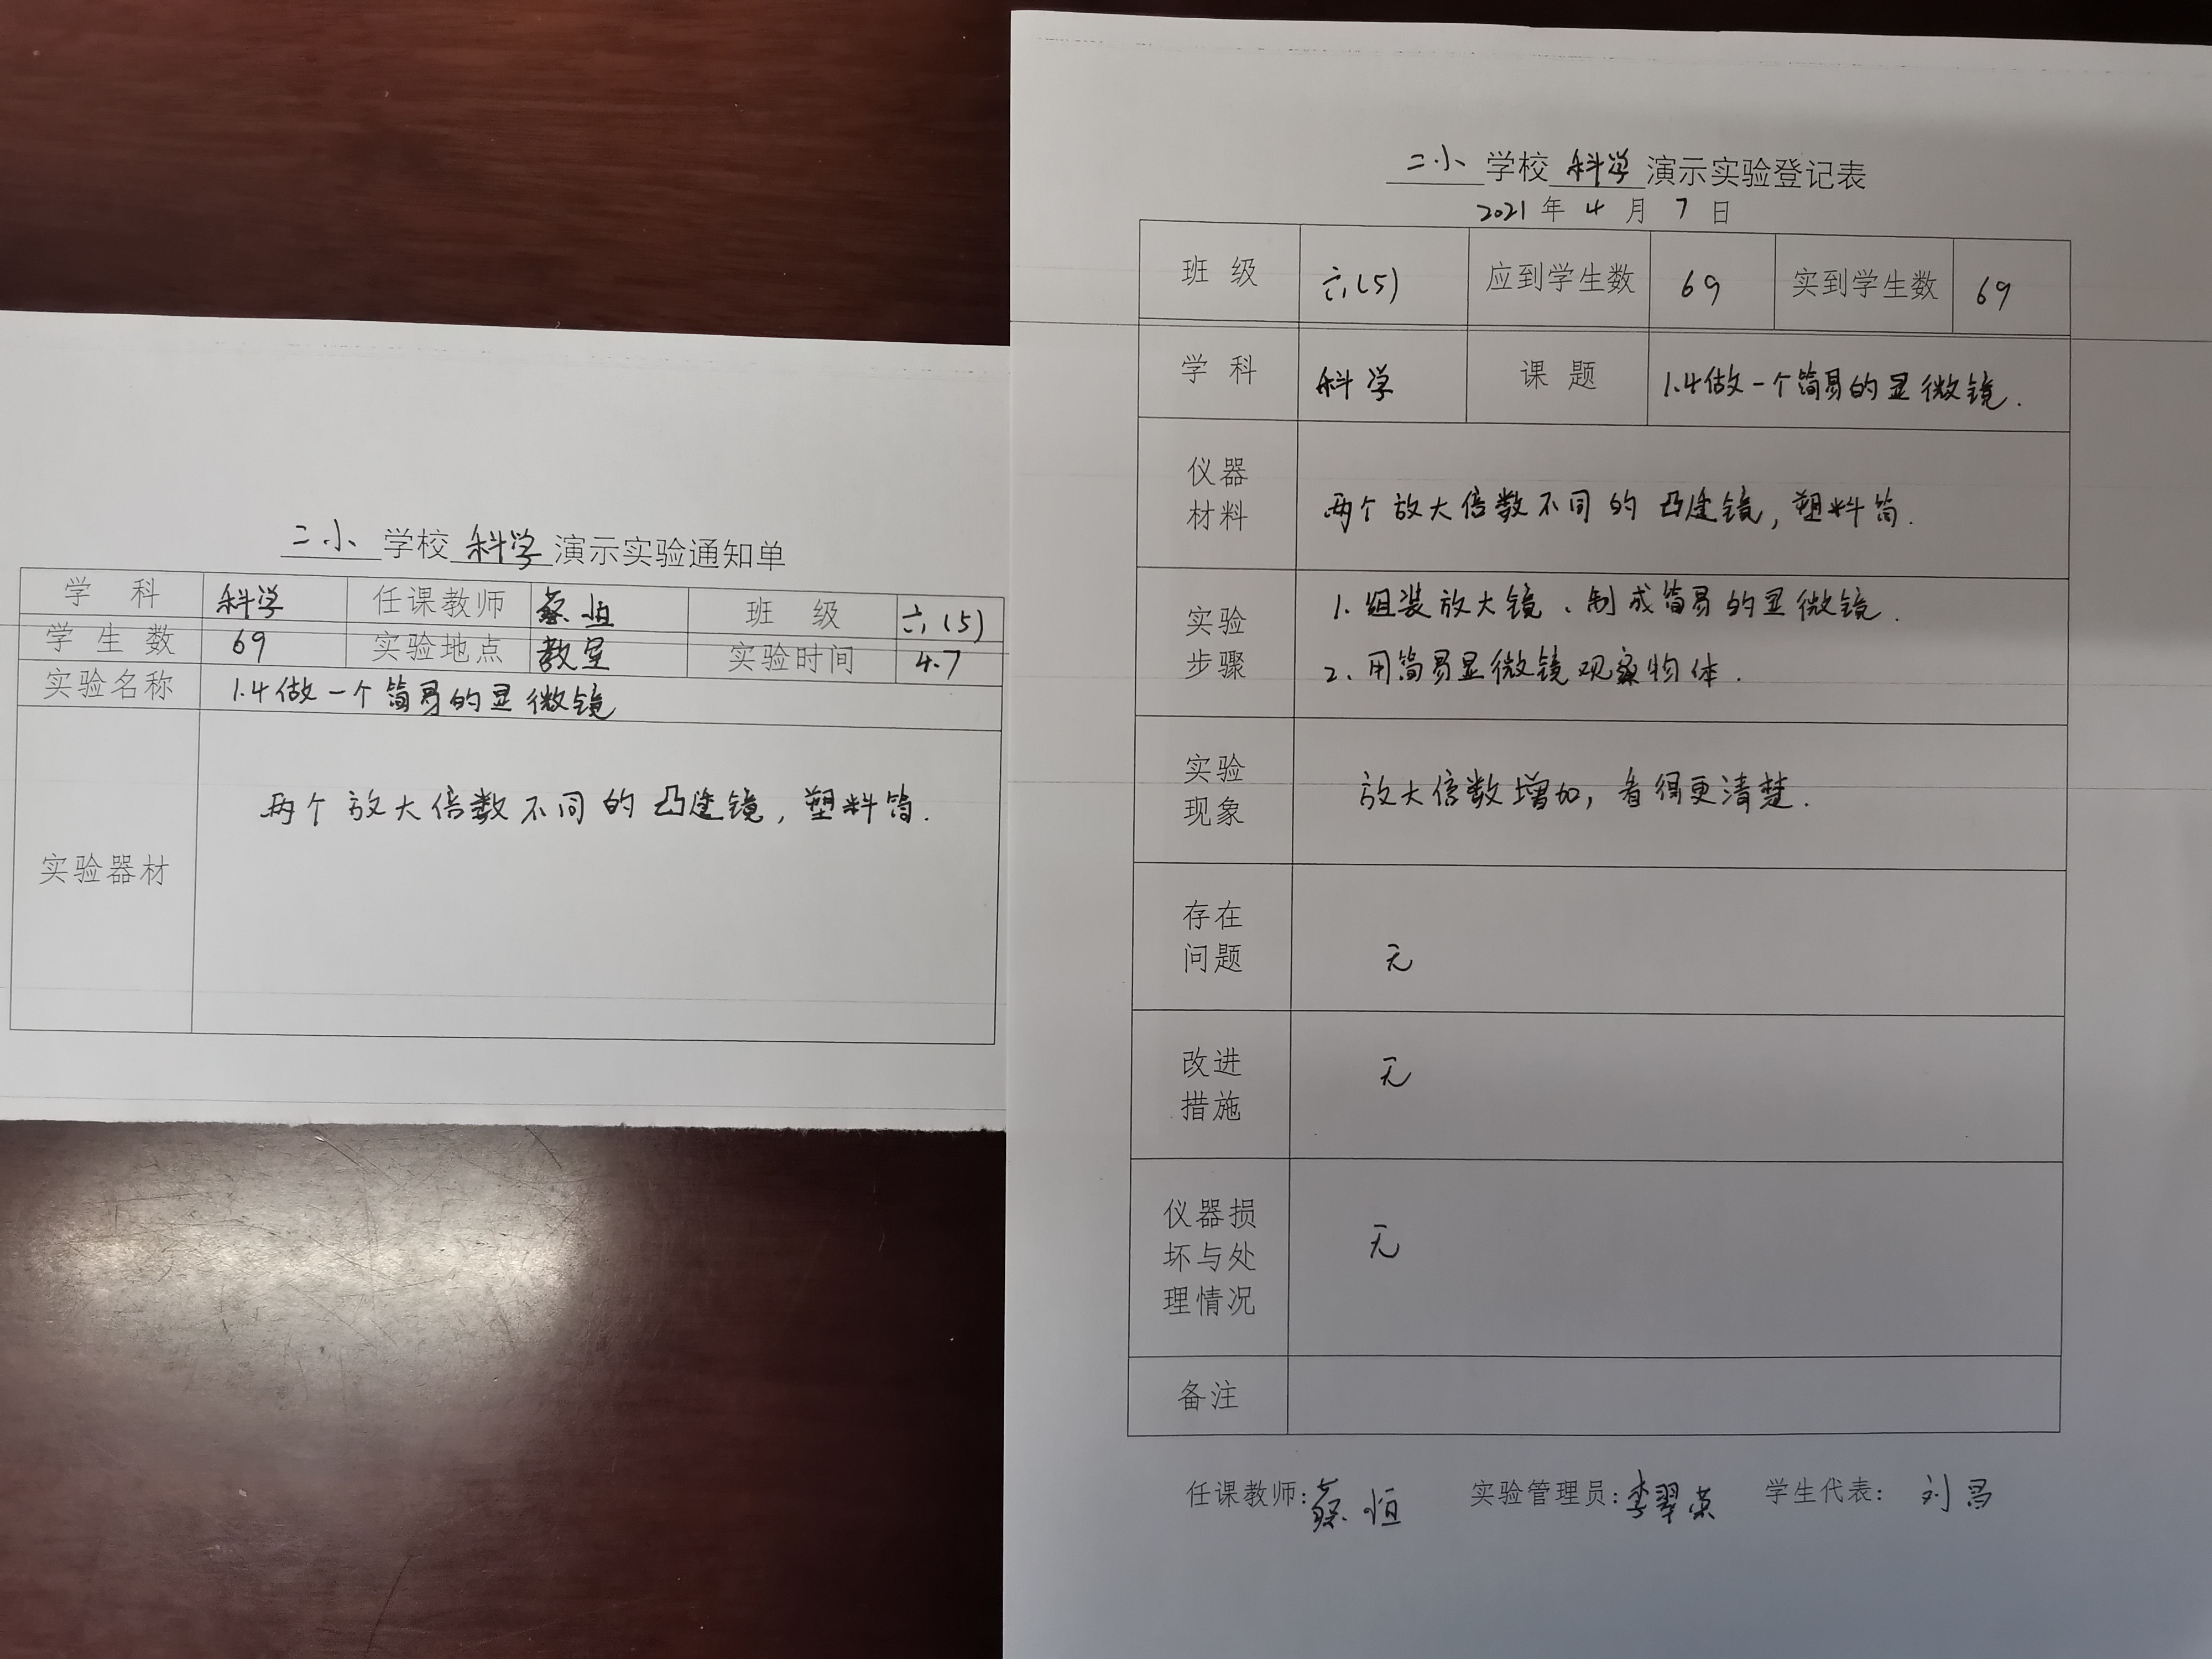 二小 学校 科学 演示实验通知单
学 科 科学 任课教师 蔡恒 班 级 六(5)
学 生 数 69 实验地点 教室 实验时间 4.7
实验名称 1.4做一个简易的显微镜
实验器材 两个放大倍数不同的凸透镜,塑料筒.
二小 学校 科学 演示实验登记表
2021 年 4 月 7 日
班 级 六(5) 应到学生数 69 实到学生数 69
学 科 科学 课 题 1.4做一个简易的显微镜.
仪器
材料
两个放大倍数不同的凸透镜,塑料筒.
实验
步骤
1.组装放大镜、制成简易的显微镜.
2、用简易显微镜观察物体.
实验
现象
放大倍数增加,看得更清楚.
存在
问题
无
改进
措施
无
仪器损
坏与处
理情况
无
备注
任课教师:蔡恒 实验管理员:李翠荣 学生代表: 刘